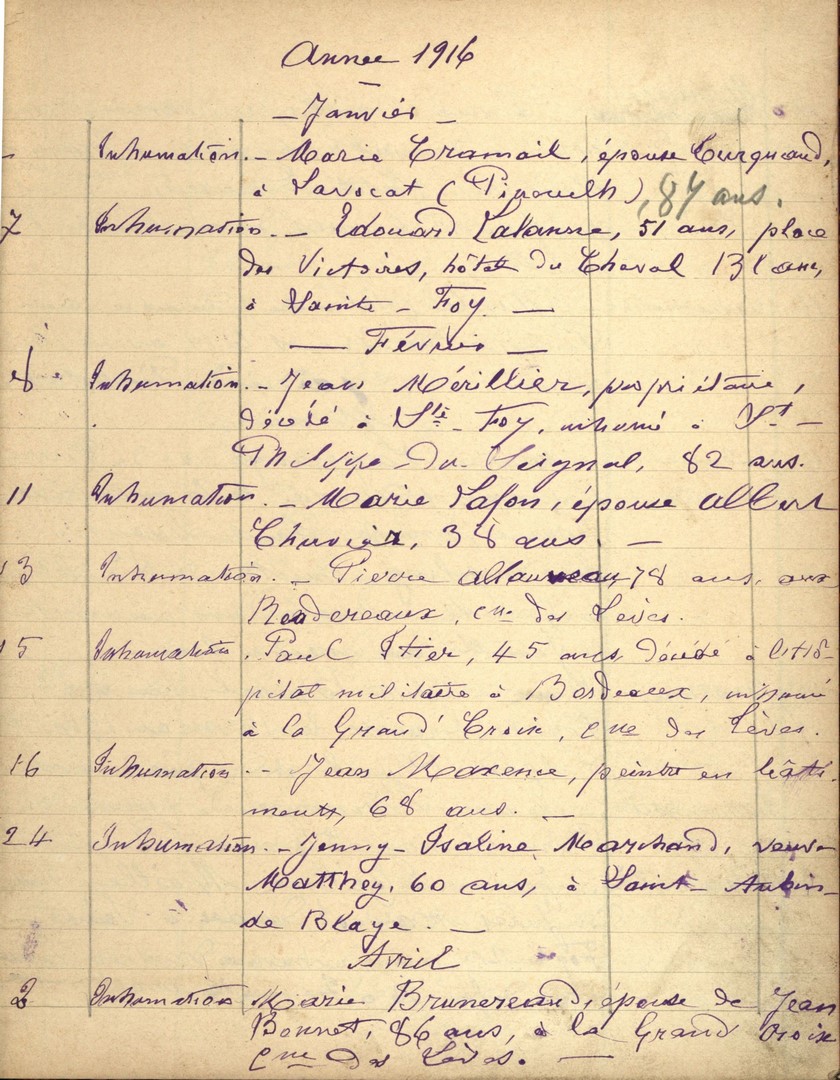 Année 1916
— Janvier —
Inhumation. — Marie Cramail, épouse Turqueand,
à Lavocat (Pinouilh), 87 ans.
7 Inhumation. — Edouard Lalanne, 51 ans, place
des Victoires, hôtel du Cheval
à Sainte-Foy. —
— Février —
8 Inhumation. — Jean Mérillier, propriétaire,
décédé à Ste-Foy, inhumé à St-
Philippe-du-Seignal, 82 ans.
11 Inhumation. — Marie Lafon, épouse Albert
38 ans. —
13 Inhumation. — Pierre 78 ans, aux
Bendereaux, cne des Lèves.
15 Inhumation. Paul Itier, 45 ans, décédé à l'Hô-
pital militaire à Bordeaux, inhumé
à la Grand' Croix, cne des Lèves.
16 Inhumation. — Jean Maxence, peintre en bâti-
ments, 68 ans. —
24 Inhumation. — Jenny-Isaline Marchand, veuve
Matthey, 60 ans, à Saint-Aubin-
de Blaye. —
Avril
2 Inhumation Marie Brunereaud, épouse de Jean
Bonnet, 86 ans, à la Grand Croix
cne des Lèves. —